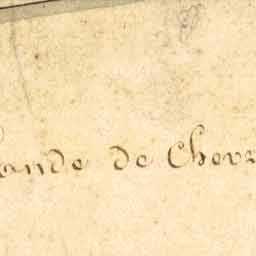 ande de Chevr